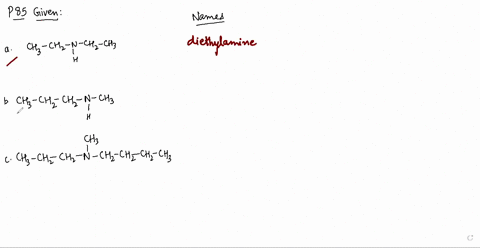 P85 Given:
Names
a. CH3-CH2-N-CH2-CH3
H
diethylamine
b CH3-CH2-CH2-N-CH3
H
CH3
c. CH3-CH2-CH2-N-CH2-CH2-CH2-CH3